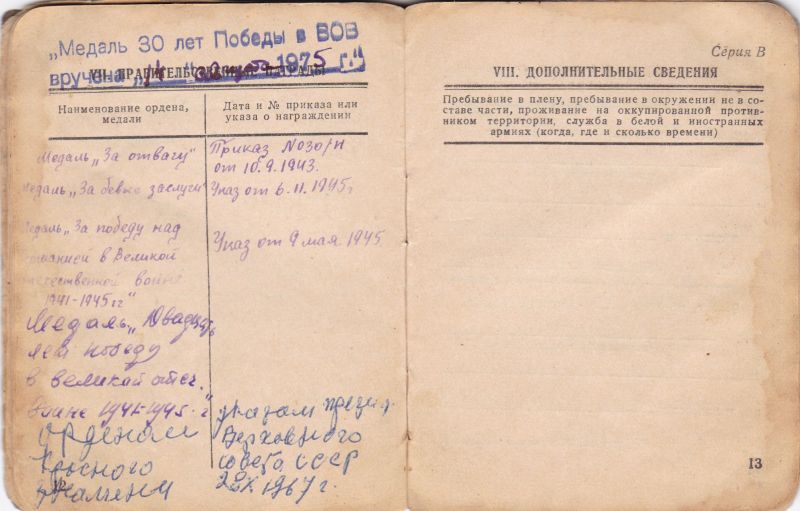 „Медаль 30 лет Победы в ВОВ
вручена „14" 1975 г."
VII. ПРАВИТЕЛЬСТВЕННЫЕ НАГРАДЫ
Наименование ордена,
медали
Дата и № приказа или
указа о награждении
Медаль „За отвагу"
Приказ №030/н
от 10.9.1943.
Медаль „За бевые заслуги"
Указ от 6.11.1945г
Медаль „За победу над
Германией в Великой
Отечественной войне
1941-1945гг"
Указ от 9 мая 1945
Медаль „Двадцать
лет победы
в великой отеч.
войне 1941-1945 г"
Орденом
Красного
Знамени
указом презид.
Верховного
совета СССР
1967 г.
Серия В
VIII. ДОПОЛНИТЕЛЬНЫЕ СВЕДЕНИЯ
Пребывание в плену, пребывание в окружении не в со-
ставе части, проживание на оккупированной против-
ником территории, служба в белой и иностранных
армиях (когда, где и сколько времени)
13